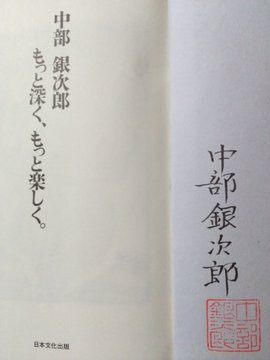 中部 銀次郎
もっと深く、もっと楽しく。
日本文化出版
中部銀次郎